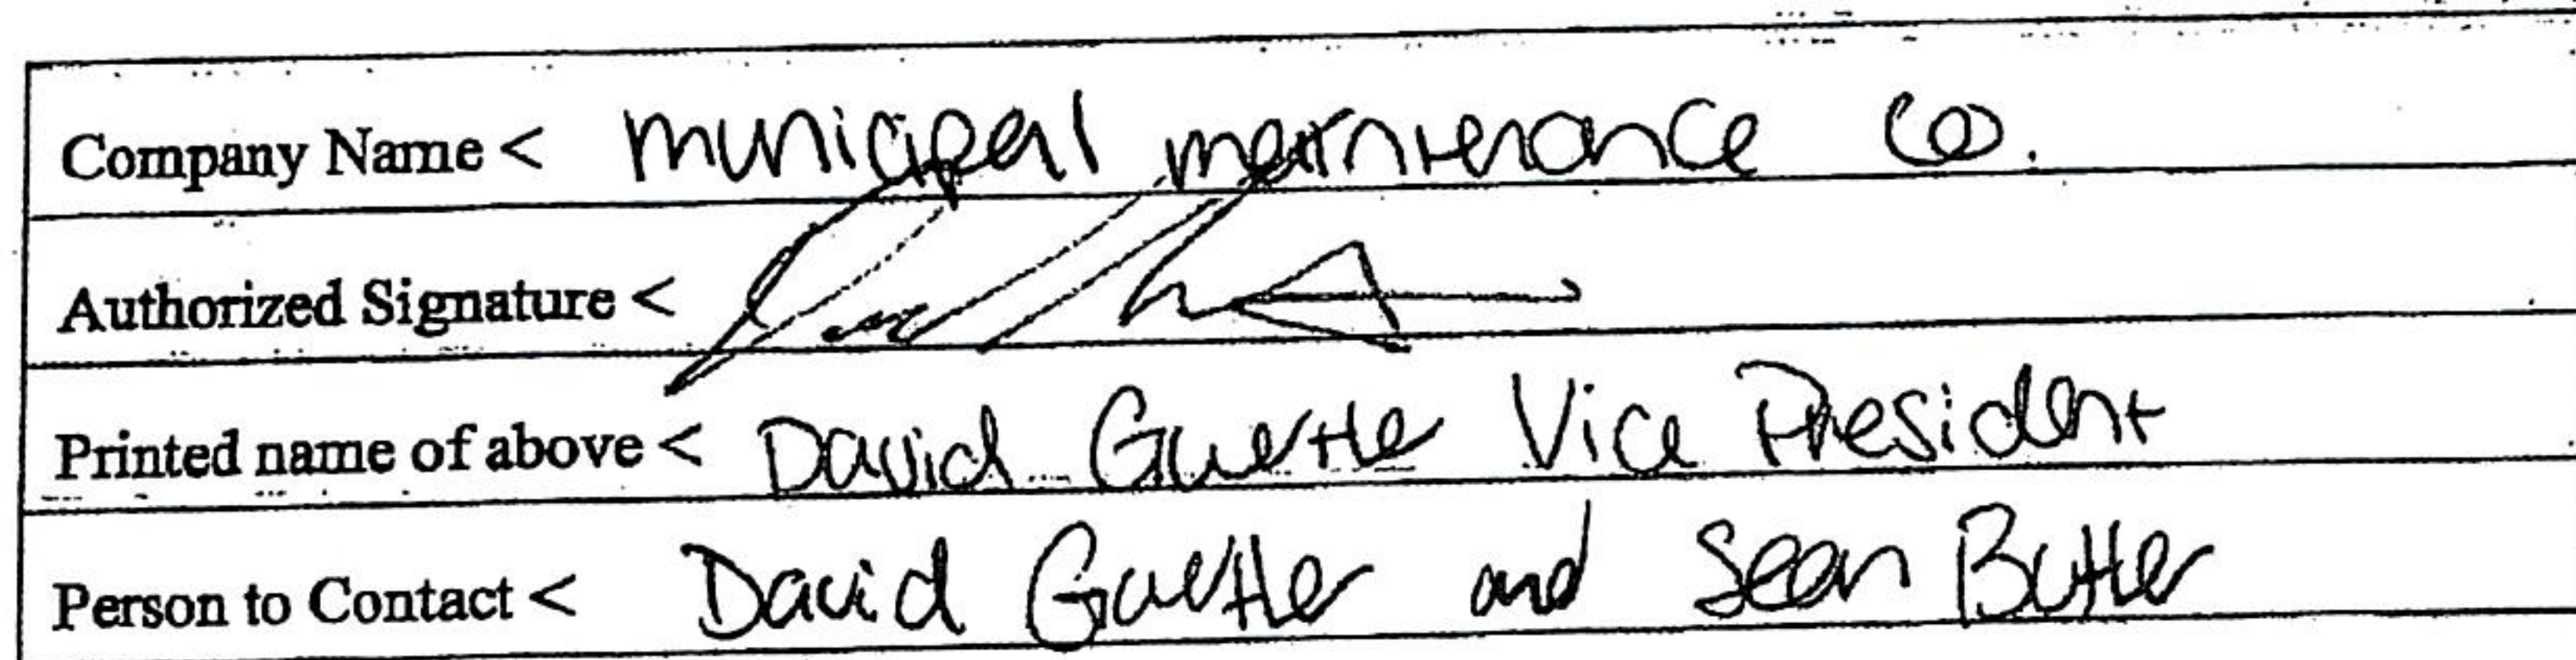 Company Name < municipal maintenance Co.
Authorized Signature <
Printed name of above < David Guertler Vice President
Person to Contact < David Guertler and Sean Butler